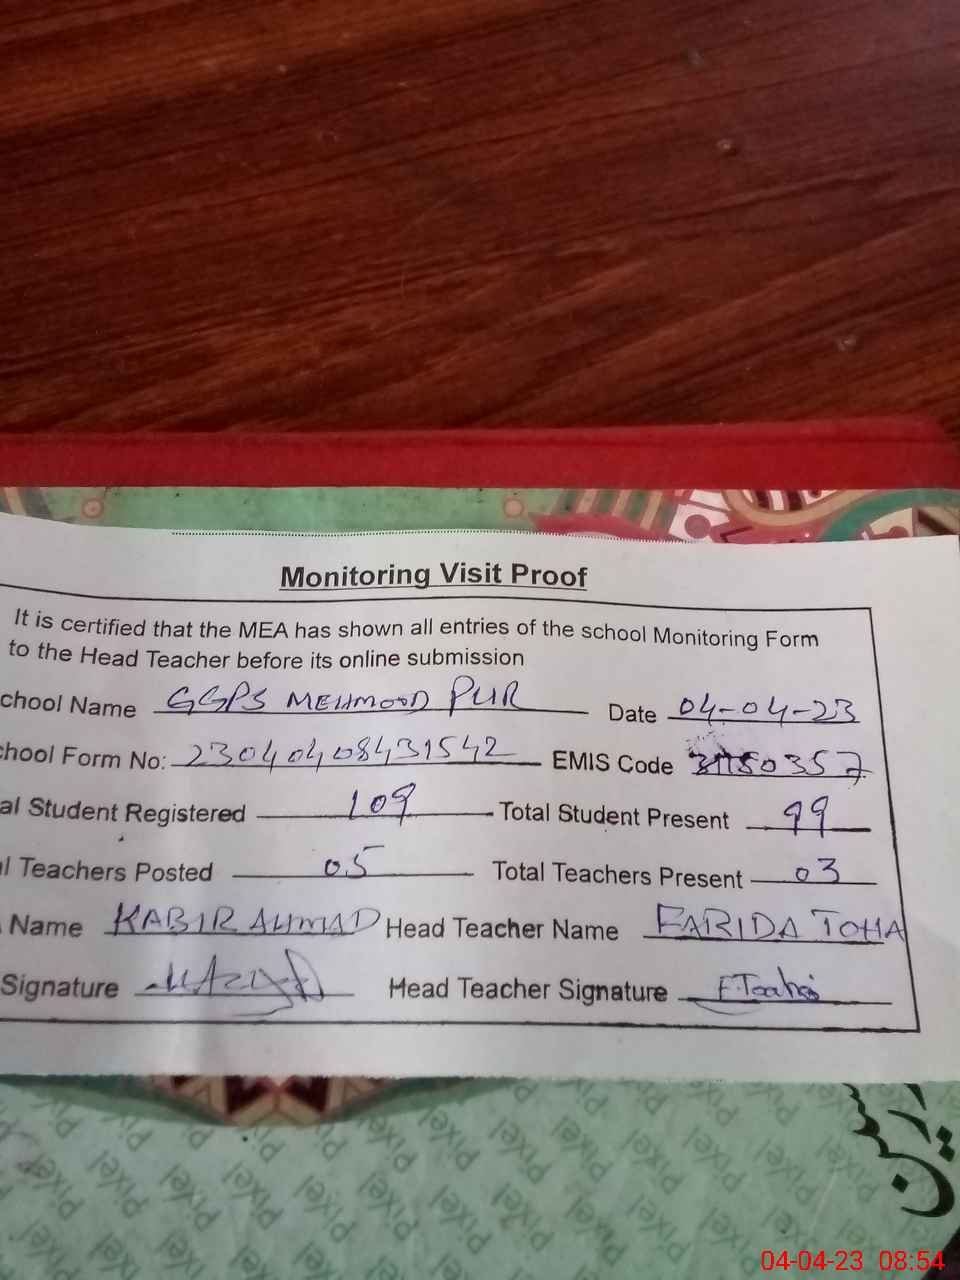 Monitoring Visit Proof
It is certified that the MEA has shown all entries of the school Monitoring Form
to the Head Teacher before its online submission
chool Name GGPS MEHMOOD PUR Date 04-04-23
chool Form No: 23040408431542 EMIS Code
al Student Registered 109 Total Student Present 99
l Teachers Posted 05 Total Teachers Present 03
Name KABIR AHMAD Head Teacher Name FARIDA TOHA
Signature Head Teacher Signature
Pixel Pixel Pixel Pixel Pixel
04-04-23 08:54